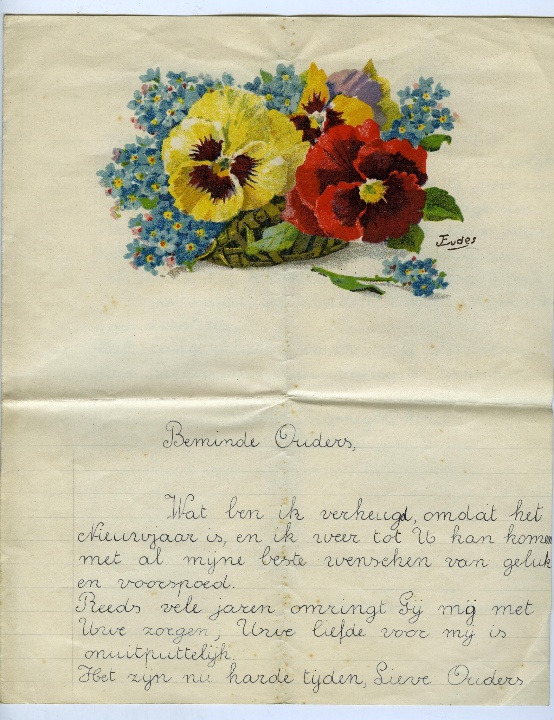 JEudes
Beminde Ouders,
Wat ben ik verheugd, omdat het
Nieuwjaar is, en ik weer tot U kan komen
met al mijne beste wenschen van geluk
en voorspoed.
Reeds vele jaren omringt Gij mij met
Uwe zorgen, Uwe liefde voor mij is
onuitputtelijk.
Het zijn nu harde tijden, Lieve Ouders